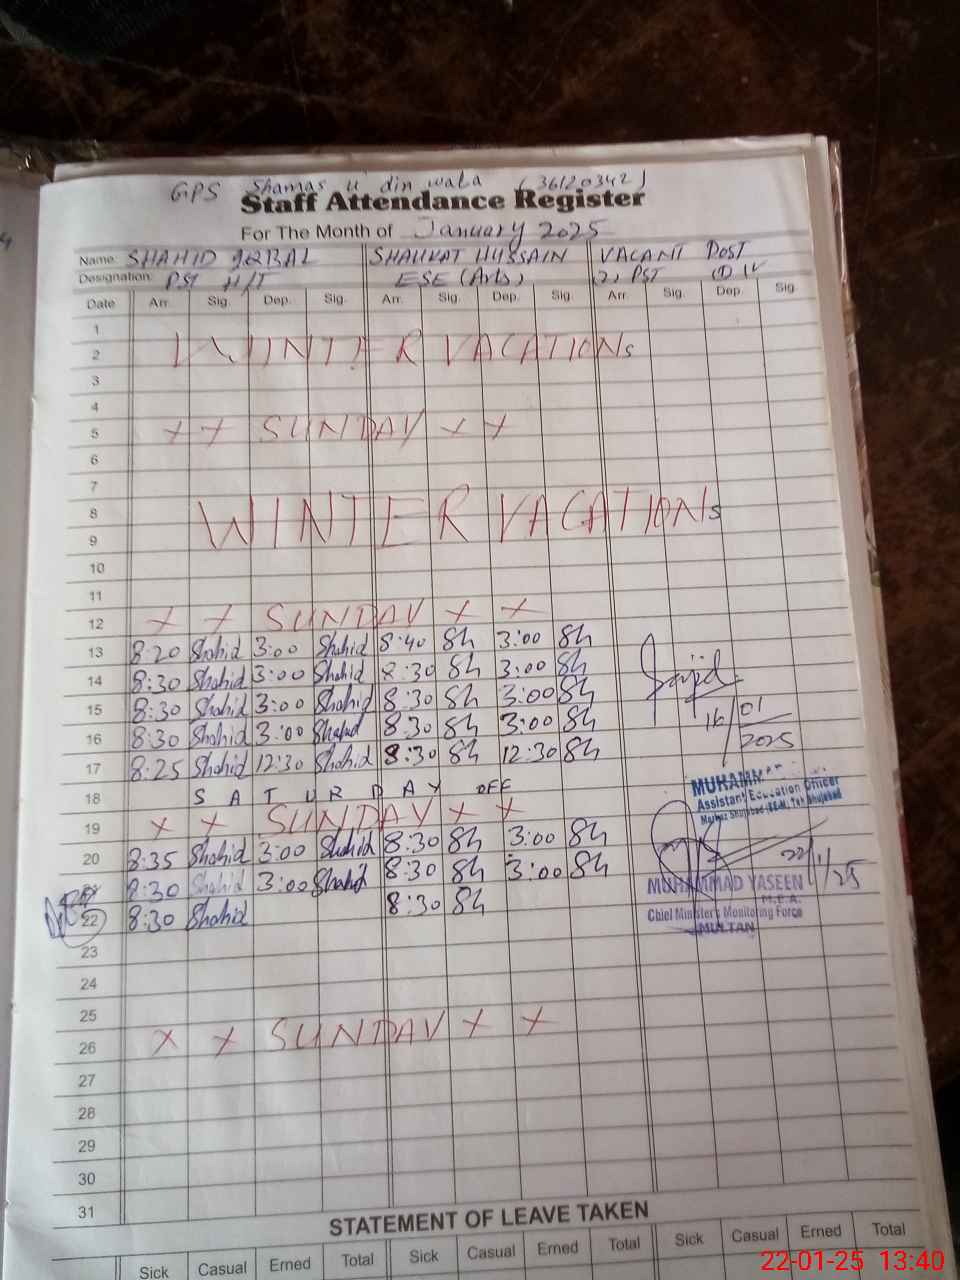 GPS Shamas u din wala (36120342)
Staff Attendance Register
For The Month of January 2025
Name: SHAHID IQBAL SHAUKAT HUSSAIN VACANT POST
Designation: PST H/T ESE (Arts) (2) PST
Date Arr. Sig. Dep. Sig. Arr. Sig. Dep. Sig. Arr. Sig. Dep. Sig.
1
2 WINTER VACATIONs
3
4
5 x x SUNDAY x x
6
7
8 WINTER VACATIONs
9
10
11
12 x x SUNDAY x x
13 8:20 Shahid 3:00 Shahid 8:40 Sh 3:00 Sh
14 8:30 Shahid 3:00 Shahid 8:30 Sh 3:00 Sh
15 8:30 Shahid 3:00 Shahid 8:30 Sh 3:00 Sh
16 8:30 Shahid 3:00 Shahid 8:30 Sh 3:00 Sh
17 8:25 Shahid 12:30 Shahid 8:30 Sh 12:30 Sh
18 SATURDAY OFF
19 x x SUNDAY x x
20 8:35 Shahid 3:00 Shahid 8:30 Sh 3:00 Sh
21 8:30 Shahid 3:00 Shahid 8:30 Sh 3:00 Sh
22 8:30 Shahid 8:30 Sh
Sajid
16/01/2025
Assistant Education Officer
22/1/25
MUHAMMAD YASEEN
M.E.A.
Chief Minister's Monitoring Force
MULTAN
23
24
25
26 x x SUNDAY x x
27
28
29
30
31
STATEMENT OF LEAVE TAKEN
Sick Casual Erned Total Sick Casual Erned Total Sick Casual Erned Total
22-01-25 13:40